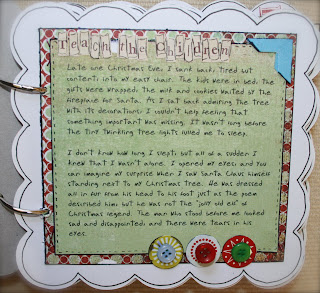 teach the children
Late one Christmas Eve, I sank back, tired but
content, into my easy chair. The kids were in bed, the
gifts were wrapped, the milk and cookies waited by the
fireplace for Santa. As I sat back admiring the tree
with its decorations, I couldn't help feeling that
something important was missing. It wasn't long before
the tiny twinkling tree lights lulled me to sleep.
I don't know how long I slept, but all of a sudden I
knew that I wasn't alone. I opened my eyes, and you
can imagine my surprise when I saw Santa Claus himself
standing next to my Christmas tree. He was dressed
all in fur from his head to his foot just as the poem
described him, but he was not the "jolly old elf" of
Christmas legend. The man who stood before me looked
sad and disappointed, and there were tears in his
eyes.